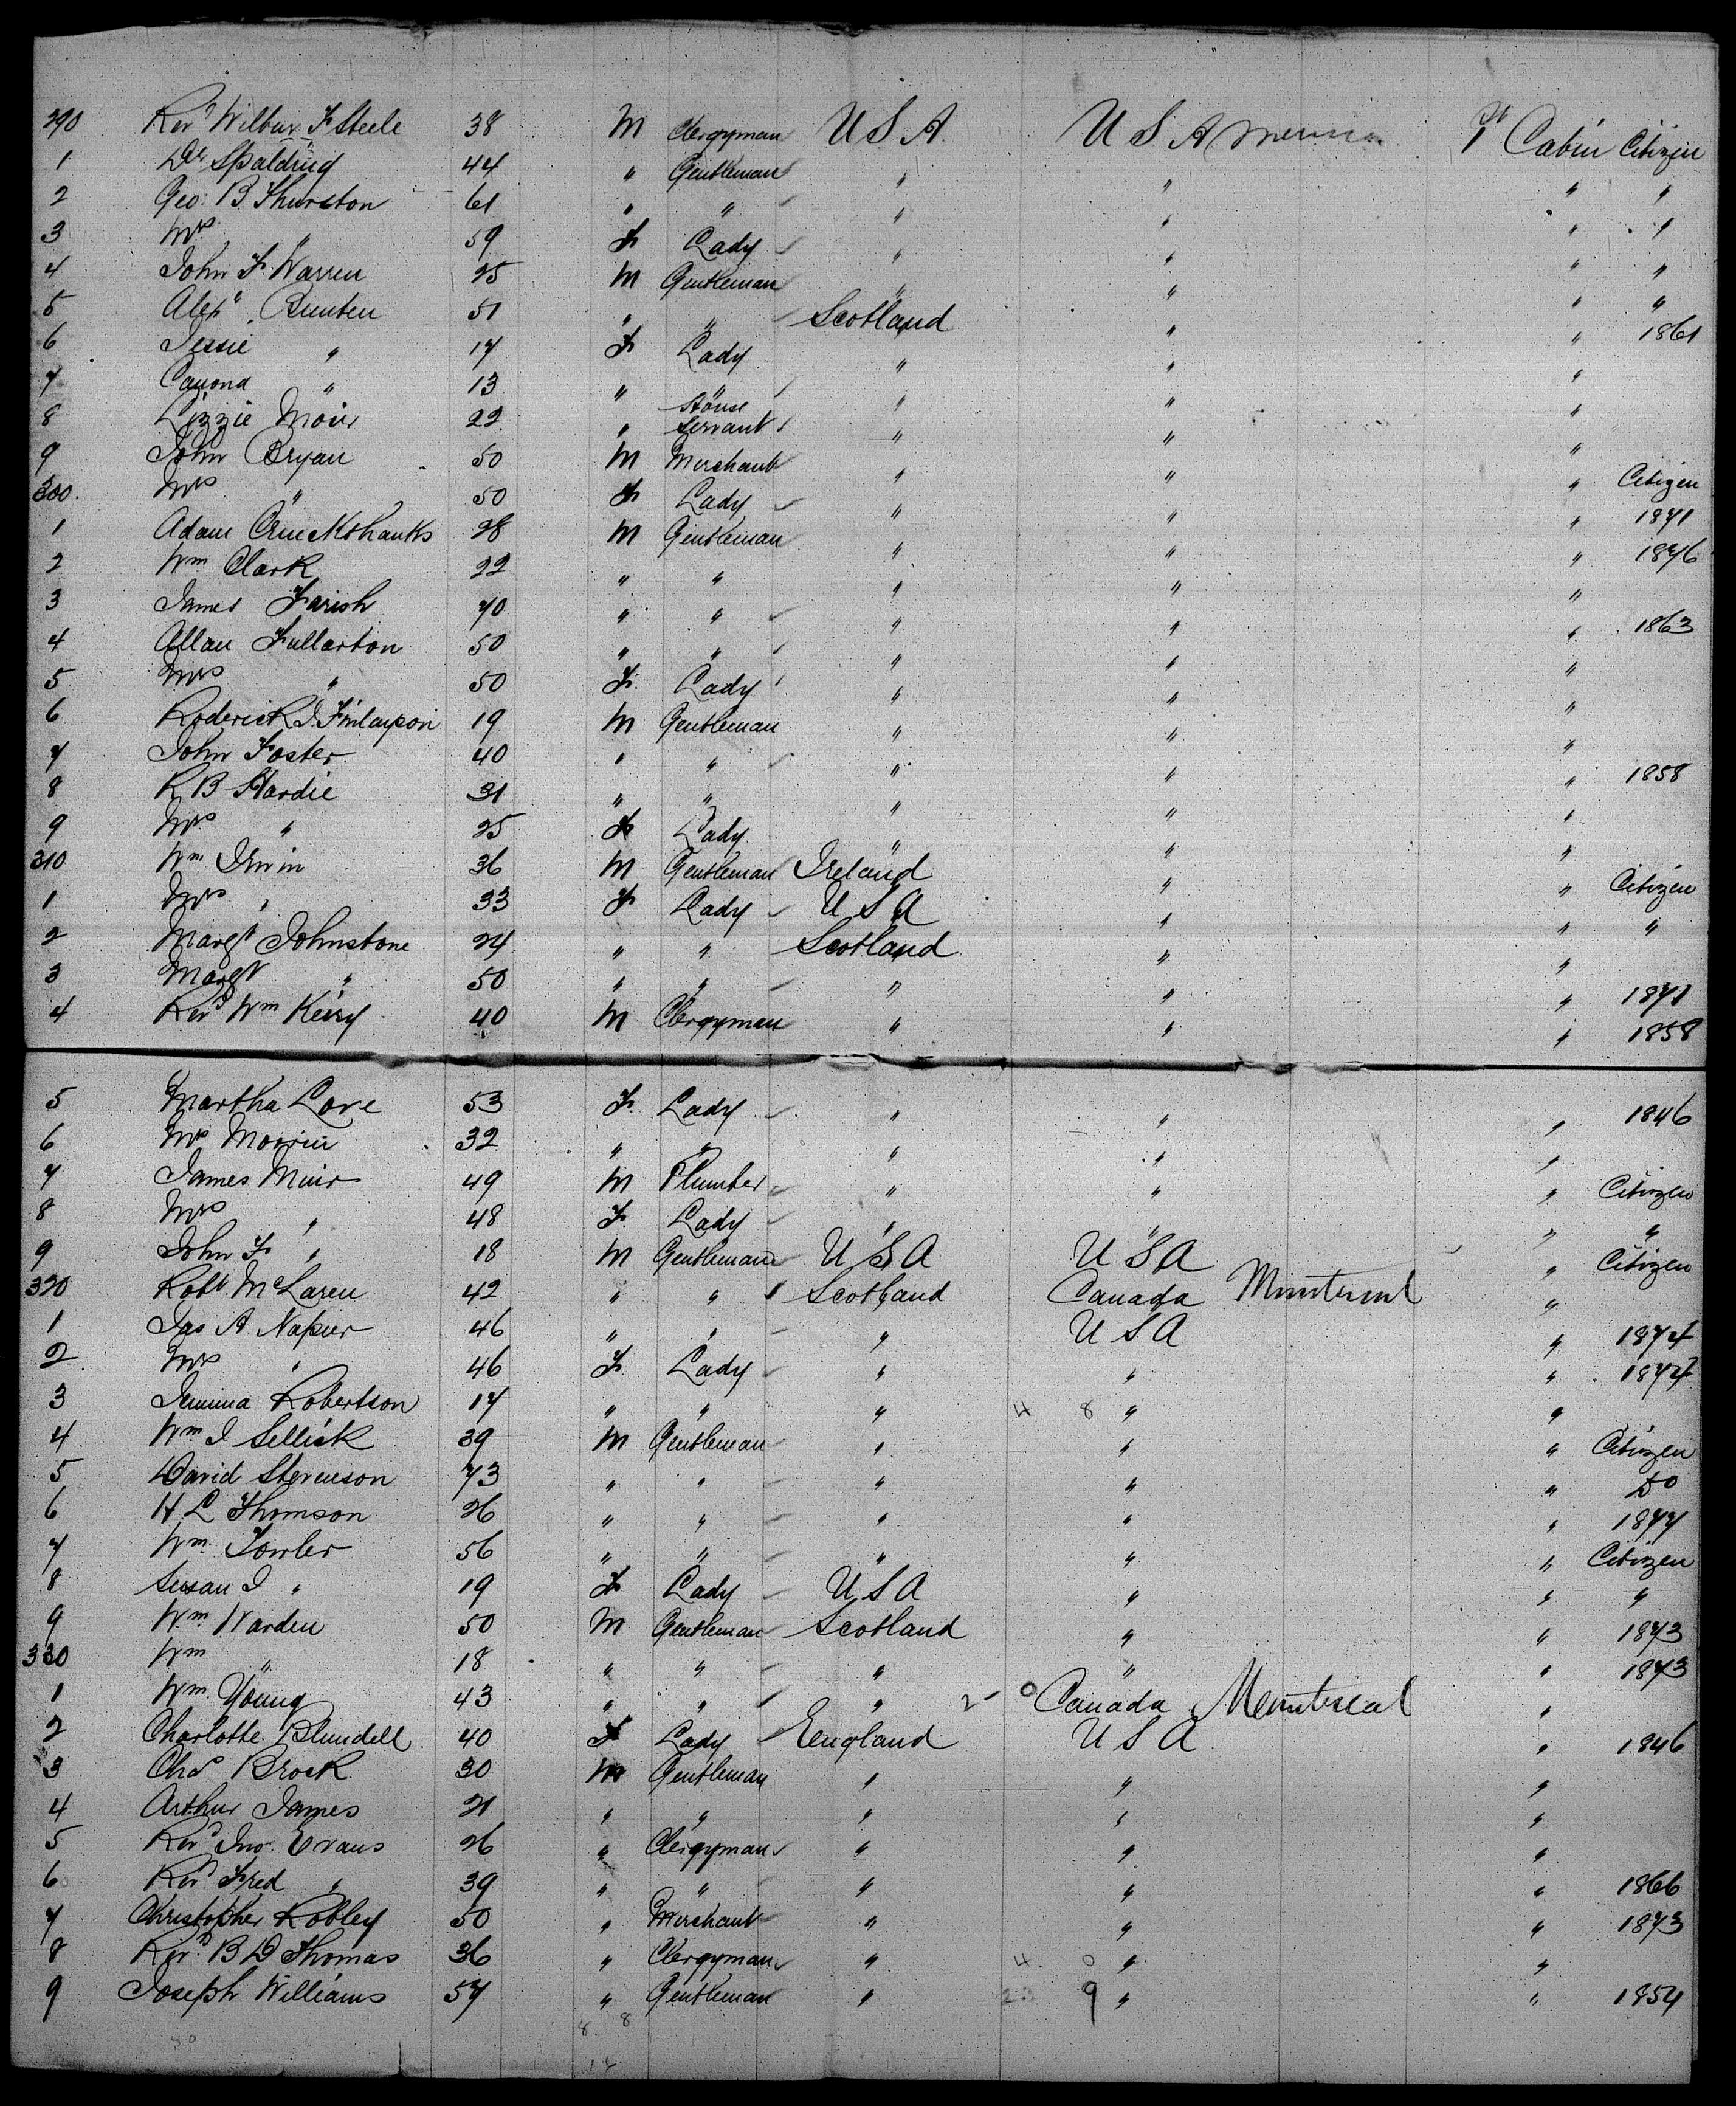 290 Revd Wilbur F Steele 38 M Clergyman U S A. U S A 1st Cabin Citizen
1 Dr Spalding 44 " Gentleman " " " "
2 Geo: B. Thurston 61 " " " " " "
3 Mrs " 59 F Lady " " " "
4 John F Warren 25 M Gentleman " " " "
5 Alexr Bunten 51 " " Scotland " " 1861
6 Jessie " 17 F Lady " " "
7 " 13 " " " " "
8 Lizzie Moir 22 " House Servant " " "
9 John Bryan 50 M Merchant " " " Citizen
300. Mrs " 50 F Lady " " " 1871
1 Adam 28 M Gentleman " " " 1876
2 Wm Clark 22 " " " " "
3 James Farish 70 " " " " " 1863
4 Allan Fullarton 50 " " " " "
5 Mrs " 50 F. Lady " " "
6 Roderick J. Finlayson 19 M Gentleman " " "
7 John Foster 40 " " " " " 1858
8 R B Hardie 31 " " " " "
9 Mrs " 25 F Lady " " "
310 Wm Irwin 36 M Gentleman Ireland " " Citizen
1 Mrs " 33 F Lady U S A " " "
2 Margt Johnstone 24 " " Scotland " "
3 Margt " 50 " " " " " 1871
4 Revd Wm 40 M Clergyman " " " 1858
5 Martha Love 53 F. Lady " " " 1846
6 Mrs Morrin 32 " " " " "
7 James Muir 49 M Plumber " " " Citizen
8 Mrs " 48 F. Lady " " " "
9 John F " 18 M Gentleman U S A U S A " Citizen
320 Robt McLaren 42 " " Scotland Canada Montreal "
1 Jas A Napier 46 " " " U S A " 1874
2 Mrs " 46 F Lady " " " 1874
3 Jemima Robertson 17 " " " 4 8 " "
4 Wm J Sellick 39 M Gentleman " " " Citizen
5 David Stevenson 73 " " " " " Do
6 H L Thomson 26 " " " " " 1877
7 Wm Fowler 56 " " " " " Citizen
8 Susan J " 19 F Lady U S A " " "
9 Wm Warden 50 M Gentleman Scotland " " 1873
330 Wm " 18 " " " " " 1873
1 Wm Young 43 " " " 2 0 Canada Montreal "
2 Charlotte Blundell 40 F Lady England U S A " 1846
3 Chas Brock 30 M Gentleman " " "
4 Arthur James 21 " " " " "
5 Revd Jno. Evans 26 " Clergyman " " "
6 Revd Fred " 39 " " " " " 1866
7 Christopher Robley 50 " Merchant " " " 1873
8 Revd B D Thomas 36 " Clergyman " 4 0 " "
9 Joseph Williams 57 " Gentleman " 23 9 " " 1854
8 8